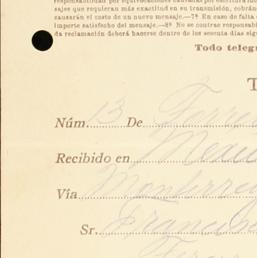 responsabilidad por equivocaciones causadas por escritura
sajes que requieran más exactitud en su transmisión, cobrán
causarán el costo de un nuevo mensaje.—7ª En caso de falta
importe satisfecho del mensaje.—8ª No se contrae responsabi
da reclamación deberá hacerse dentro de los sesenta días sig
Todo telegr
T
Núm. 13 De
Recibido en Mexic
Vía Monterrey
Sr. Francisc